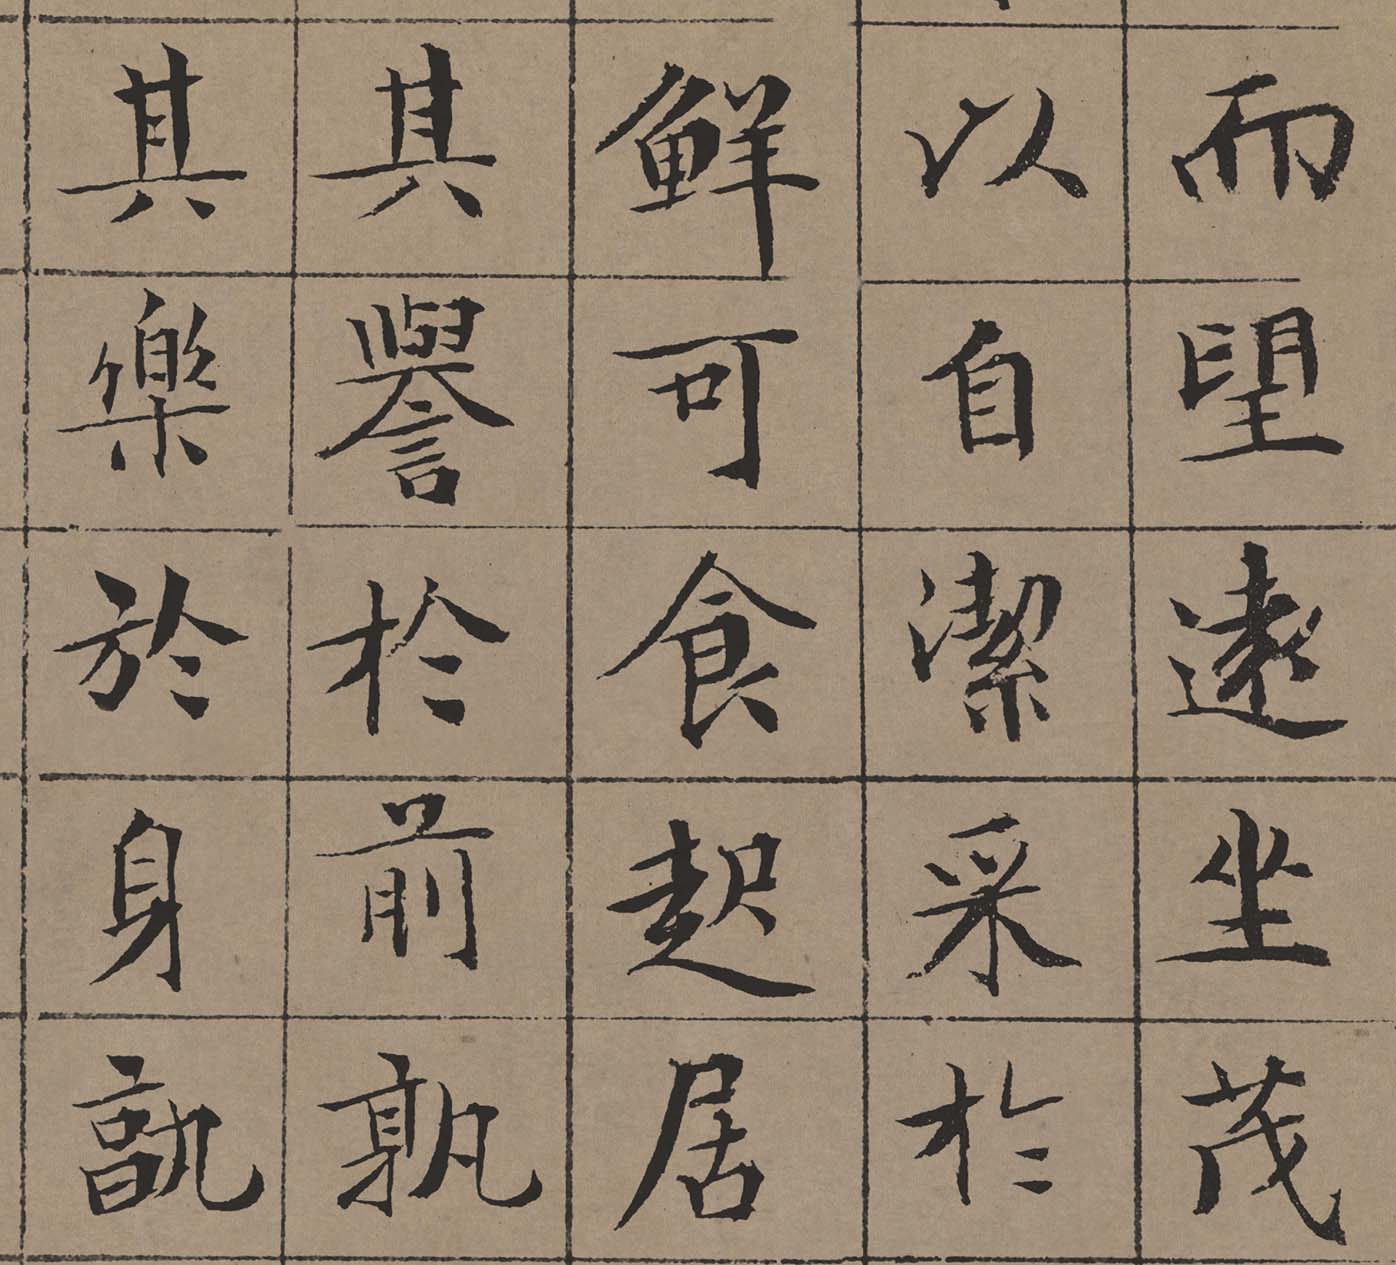 而望遠坐茂
以自潔采於
鮮可食起居
其譽於前孰
其樂於身孰